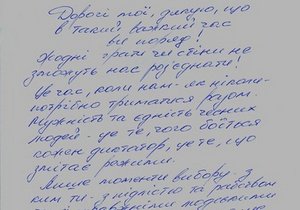 Дорогі мої, дякую, що
в такий важкий час
ви поряд!
Жодні грати чи стіни не
зможуть нас роз'єднати!
Це час, коли нам - як ніколи -
потрібно триматися разом.
Мужність та єдність чесних
людей - це те, чого боїться
кожен диктатор, це те, що
змітає режими.
Лише моменти вибору - з
ким ти - з гідністю та рабством